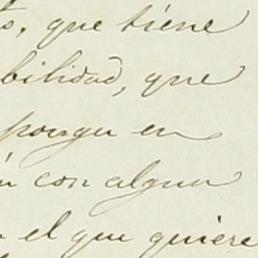 , que tiene
bilidad, que
ponga en
con algun
el que quiere